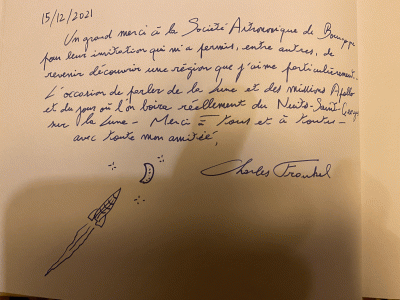 15/12/2021
Un grand merci à la Société Astronomique de Bourgogne
pour leur invitation qui m'a permis, entre autres, de
revenir découvrir une région que j'aime particulièrement.
L'occasion de parler de la Lune et des missions Apollo
et du jour où l'on boira réellement du Nuits-Saint-Georges
sur la Lune - Merci à tous et à toutes -
avec toute mon amitié,
Charles Frankel